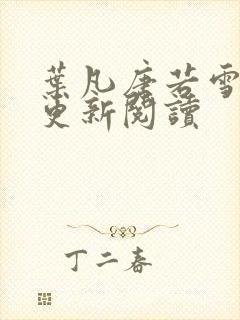 葉凡唐若雪
更新閱讀
丁二春